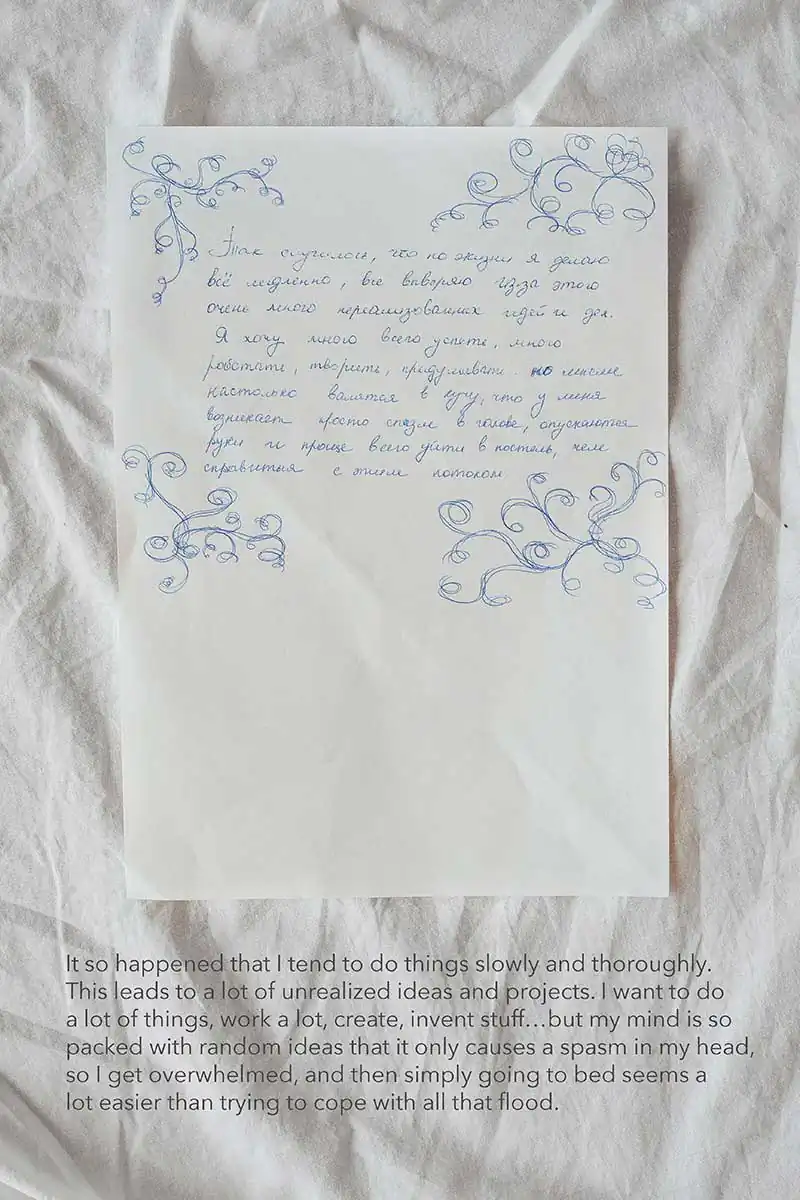 Так случилось, что по жизни я делаю
всё медленно, все
из-за этого
очень много нереализованных идей и дел.
Я хочу много всего успеть, много
работать, творить, придумывать но мысли
настолько валятся в кучу, что у меня
возникает просто спазм в голове, опускаются
руки и проще всего уйти в постель, чем
справиться с этим потоком
It so happened that I tend to do things slowly and thoroughly.
This leads to a lot of unrealized ideas and projects. I want to do
a lot of things, work a lot, create, invent stuff...but my mind is so
packed with random ideas that it only causes a spasm in my head,
so I get overwhelmed, and then simply going to bed seems a
lot easier than trying to cope with all that flood.